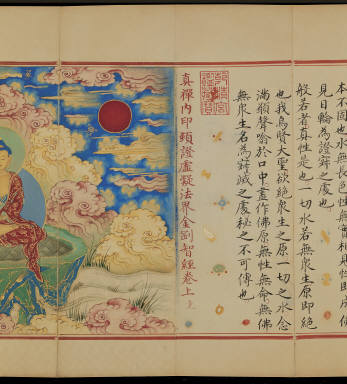 本不固也水無長色性無實相見性即成佛
見日輪為證寂之處也
般若者真性是也一切水若無眾生原即絕
也我為賢大聖欲絕眾生之原一切之水一念
滿願聲喻於口中畫作佛原無性無命無佛
無眾生名為寂滅之處秘之不可傳也
真禪內印頓證虛凝法界金剛智經卷上